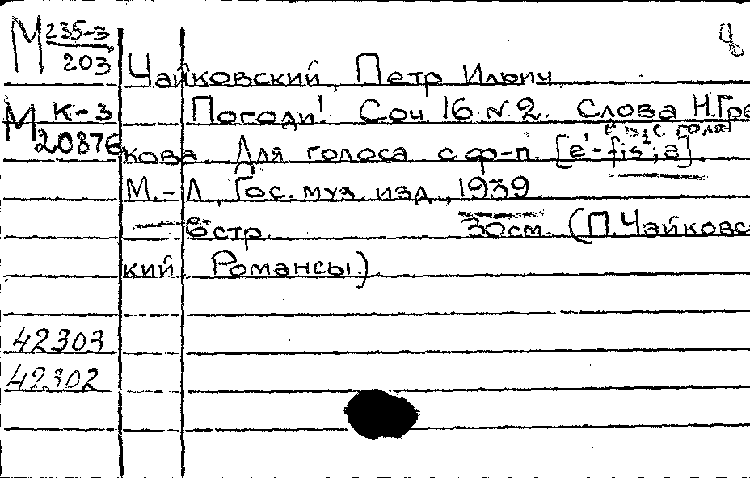 М 235-3
203
Чайковский, Петр Ильич
М К-3
20876
Погоди! Соч. 16 N 2. Слова Н.Гре
кова. Для голоса с ф-п. [e'-fis²; a].
М.-Л., Гос. муз. изд., 1939
6 стр. 30 см. (П.Чайковс
кий Романсы.)
42303
42302